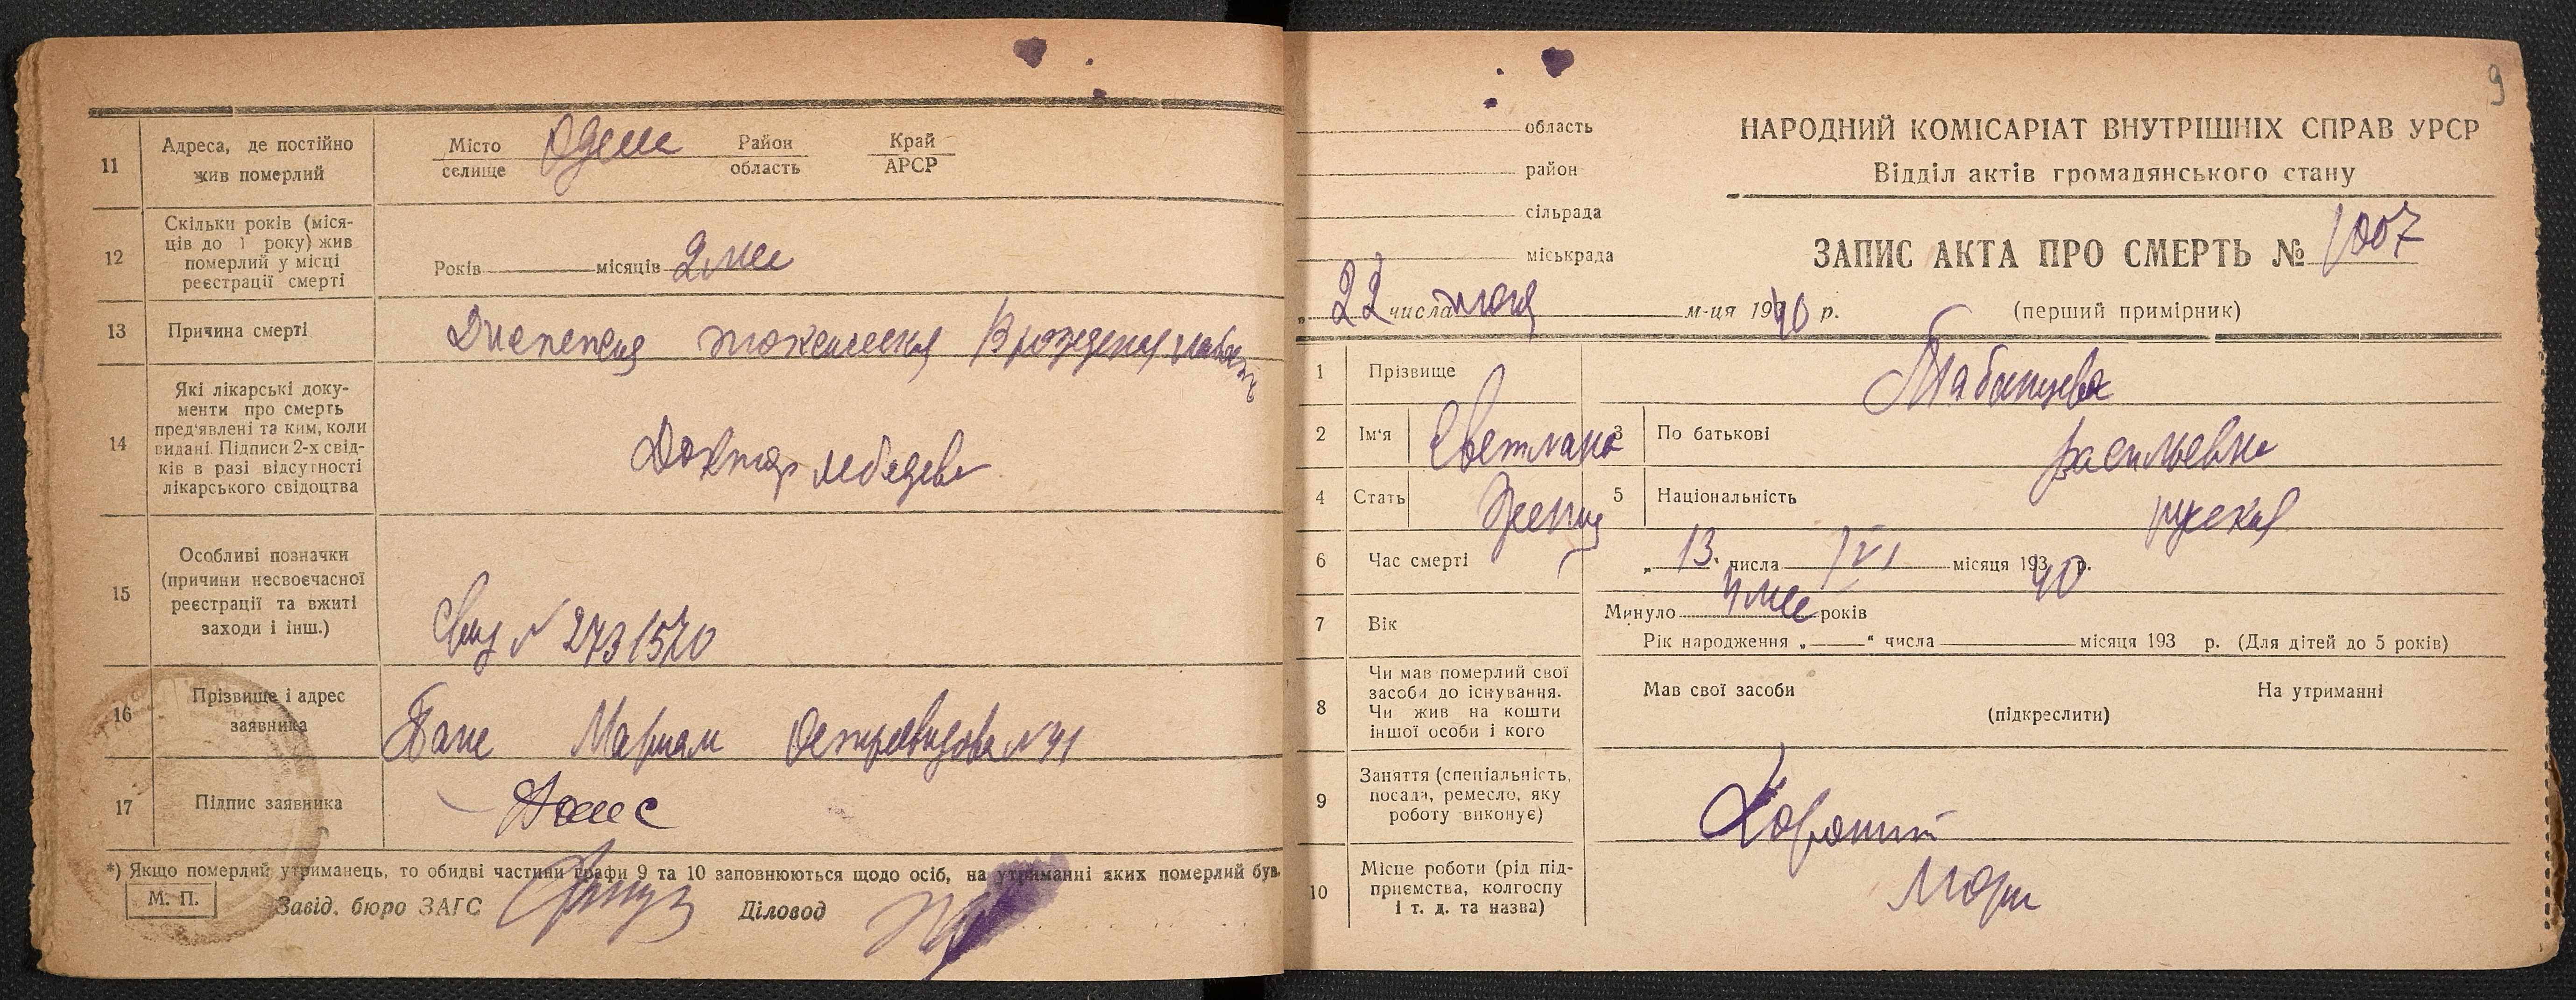 11 Адреса, де постійно жив померлий
Місто селище Одесса Район область Край АРСР
12 Скільки років (міся-
ців до 1 року) жив
померлий у місці
реєстрації смерті
Років місяців 2 мес
13 Причина смерті
Диспепсия токсическая Врожденая
14 Які лікарські доку-
менти про смерть
пред'явлені та ким, коли
видані. Підписи 2-х свід-
ків в разі відсутності
лікарського свідоцтва
Доктор Лебедева
15 Особливі позначки
(причини несвоєчасної
реєстрації та вжиті
заходи і інш.)
№ 2731570
16 Прізвище і адрес
заявника
Мариам Островидова № 41
17 Підпис заявника
*) Якщо померлий утриманець, то обидві частини графи 9 та 10 заповнюються щодо осіб, на утриманні яких померлий був.
М. П.
Завід. бюро ЗАГС Діловод
9
область
район
сільрада
міськрада
НАРОДНИЙ КОМІСАРІАТ ВНУТРІШНІХ СПРАВ УРСР
Відділ актів громадянського стану
ЗАПИС АКТА ПРО СМЕРТЬ № 1007
„ 22 числа м-ця 1940 р. (перший примірник)
1 Прізвище Табанцева
2 Ім'я Светлана 3 По батькові Васильевна
4 Стать 5 Національність русская
6 Час смерті „ 13. числа VI місяця 1940 р.
7 Вік
Минуло 4 мес років
Рік народження „ “ числа місяця 193 р. (Для дітей до 5 років)
8 Чи мав померлий свої
засоби до існування.
Чи жив на кошти
іншої особи і кого
Мав свої засоби На утриманні
(підкреслити)
9 Заняття (спеціальність,
посада, ремесло, яку
роботу виконує)
10 Місце роботи (рід під-
приємства, колгоспу
і т. д. та назва)